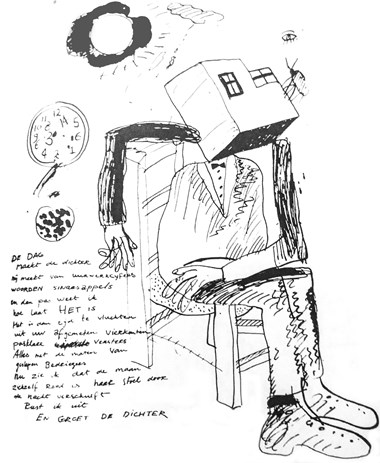 DE DAG
Maakt de dichter
Hij maakt van uurwerkcijfers
WOORDEN SINAASAPPELS
En dan pas weet ik
hoe laat HET is
Het is dan tijd te vluchten
uit uw afgemeten vierkanten
vensters
Alles met de maten van
Bedriegers
Nu zie ik dat de maan
zichzelf rond is stoel door
de nacht verschuift
ik uit
EN GROET DE DICHTER